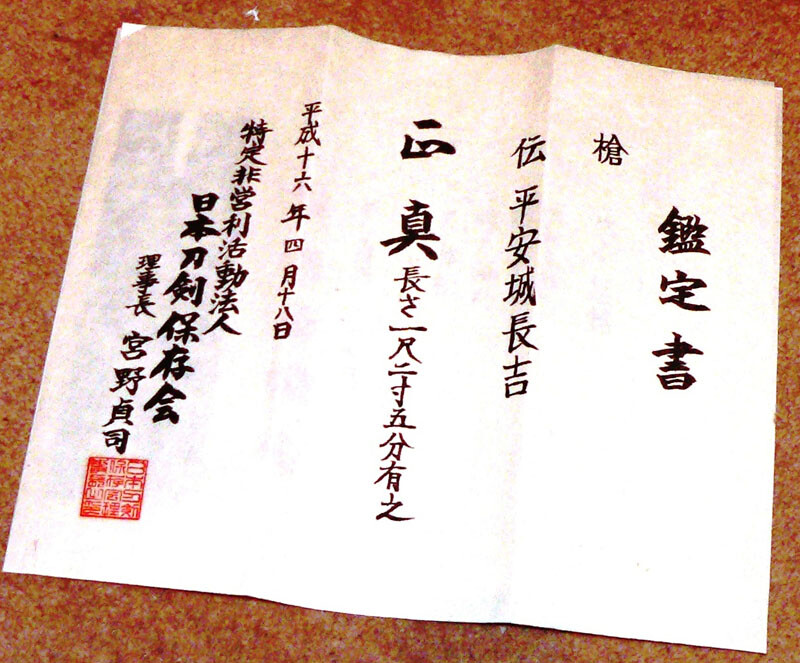 鑑定書
槍
伝 平安城長吉
正真
長さ一尺二寸五分有之
平成十六年四月十八日
特定非営利活動法人
日本刀剣保存会
理事長 宮野貞司